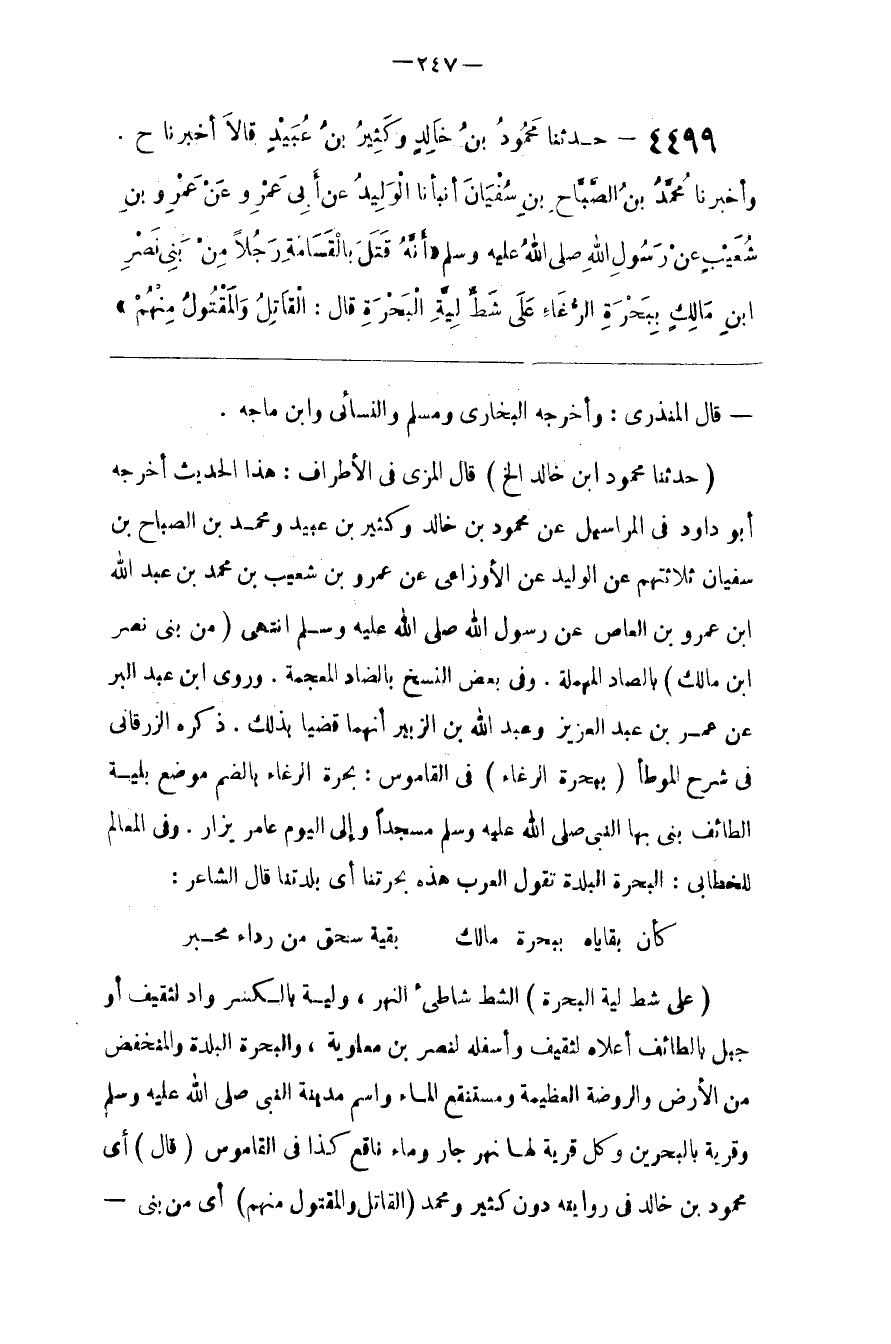 — ٢٤٧ —
٤٤٩٩ — حدثنا مَحْمُودُ بنُ خَالِدٍ وَكَثِيرُ بنُ عُبَيْدٍ قالاَ أخبرنا ح .
وأخبرنا مُحَمَّدُ بنُ الصَّبَّاحِ بنِ سُفْيَانَ أنبأنا الْوَلِيدُ عن أَبِى عَمْرٍ و عَنْ عَمْرِو بنِ
شُعَيْبٍ عنْ رَسُولِ اللهِ صلى اللهُ عليه وسلم «أَنَّهُ قَتَلَ بالْقَسَامَةِ رَجُلاً مِنْ بَنِى نَصْرِ
ابنِ مَالِكٍ بِبَحْرَةِ الرُّغَاءِ عَلَى شَطِّ لِيَّةِ الْبَحْرَةِ قال : الْقَاتِلُ وَالْمَقْتُولُ مِنْهُمْ »
— قال المنذرى : وأخرجه البخارى ومسلم والنسائى وابن ماجه .
( حدثنا محمود ابن خالد الخ ) قال المزى فى الأطراف : هذا الحديث أخرجه
أبو داود فى المراسيل عن محمود بن خالد وكثير بن عبيد ومحمد بن الصباح بن
سفيان ثلاثتهم عن الوليد عن الأوزاعى عن عمرو بن شعيب بن محمد بن عبد الله
ابن عمرو بن العاص عن رسول الله صلى الله عليه وسلم انتهى ( من بنى نصر
ابن مالك ) بالصاد المهملة . وفى بعض النسخ بالضاد المعجمة . وروى ابن عبد البر
عن عمر بن عبد العزيز وعبد الله بن الزبير أنهما قضيا بذلك . ذكره الزرقانى
فى شرح الموطأ ( ببحرة الرغاء ) فى القاموس : بحرة الرغاء بالضم موضع بلية
الطائف بنى بها النبى صلى الله عليه وسلم مسجداً وإلى اليوم عامر يزار . وفى المعالم
للخطابى : البحرة البلدة تقول العرب هذه بحرتنا أى بلدتنا قال الشاعر :
كأن بقاياه ببحرة مالك بقية سحق من رداء محبر
( على شط لية البحرة ) الشط شاطىء النهر ، ولية بالكسر واد لثقيف أو
جبل بالطائف أعلاه لثقيف وأسفله لنصر بن معاوية ، والبحرة البلدة والمنخفض
من الأرض والروضة العظيمة ومستنقع الماء واسم مدينة النبى صلى الله عليه وسلم
وقرية بالبحرين وكل قرية لها نهر جار وماء ناقع كذا فى القاموس ( قال ) أى
محمود بن خالد فى روايته دون كثير ومحمد (القاتل والمقتول منهم) أى من بنى —